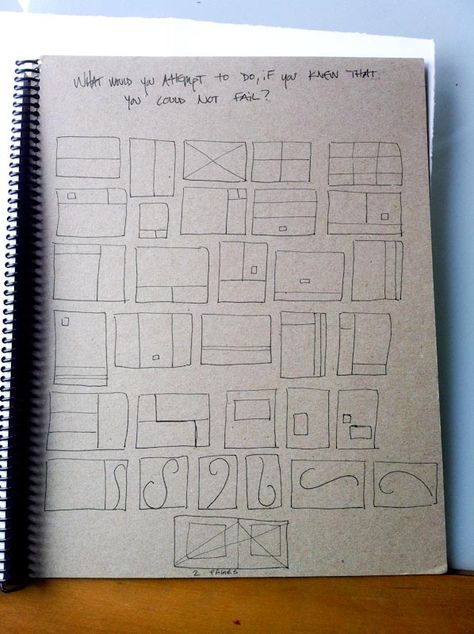 WHAT WOULD YOU ATTEMPT TO DO, IF YOU KNEW THAT
YOU COULD NOT FAIL?
2 PAGES